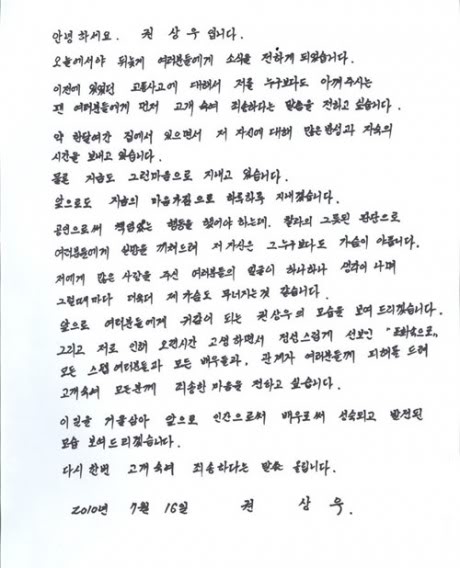 안녕하세요. 권상우 입니다.
오늘에서야 뒤늦게 여러분들에게 소식을 전하게 되었습니다.
이전에 있었던 교통사고에 대해서 저를 누구보다도 아껴주시는
팬 여러분들에게 먼저 고개숙여 죄송하다는 말씀을 전하고 싶습니다.
약 한달여간 집에서 있으면서 저 자신에 대해 많은 반성과 자숙의
시간을 보내고 있습니다.
물론 지금도 그런마음으로 지내고 있습니다.
앞으로도 지금의 마음가짐으로 하루하루 지내겠습니다.
공인으로써 책임있는 행동을 했어야 하는데. 찰과의 그릇된 판단으로
여러분들에게 실망을 끼쳐드려 저 자신은 그누구보다도 가슴이 아픕니다.
저에게 많은 사랑을 주신 여러분들의 얼굴이 하나하나 생각이 나며
그럴때마다 더욱더 제 가슴도 무너지는것 같습니다.
앞으로 여러분들에게 귀감이 되는 권상우의 모습을 보여드리겠습니다.
그리고 저로 인해 오랜시간 고생하면서 정성스럽게 선보인 "포화속으로"
모든 스텝 여러분들과 모든 배우들과, 관계자 여러분들께 피해를 드려
고개숙여 모든분께 죄송한 마음을 전하고 싶습니다.
이 일을 거울삼아 앞으로 인간으로써 배우로써 성숙되고 발전된
모습 보여드리겠습니다.
다시 한번 고개숙여 죄송하다는 말씀 올립니다.
2010년 7월 16일 권 상 우.